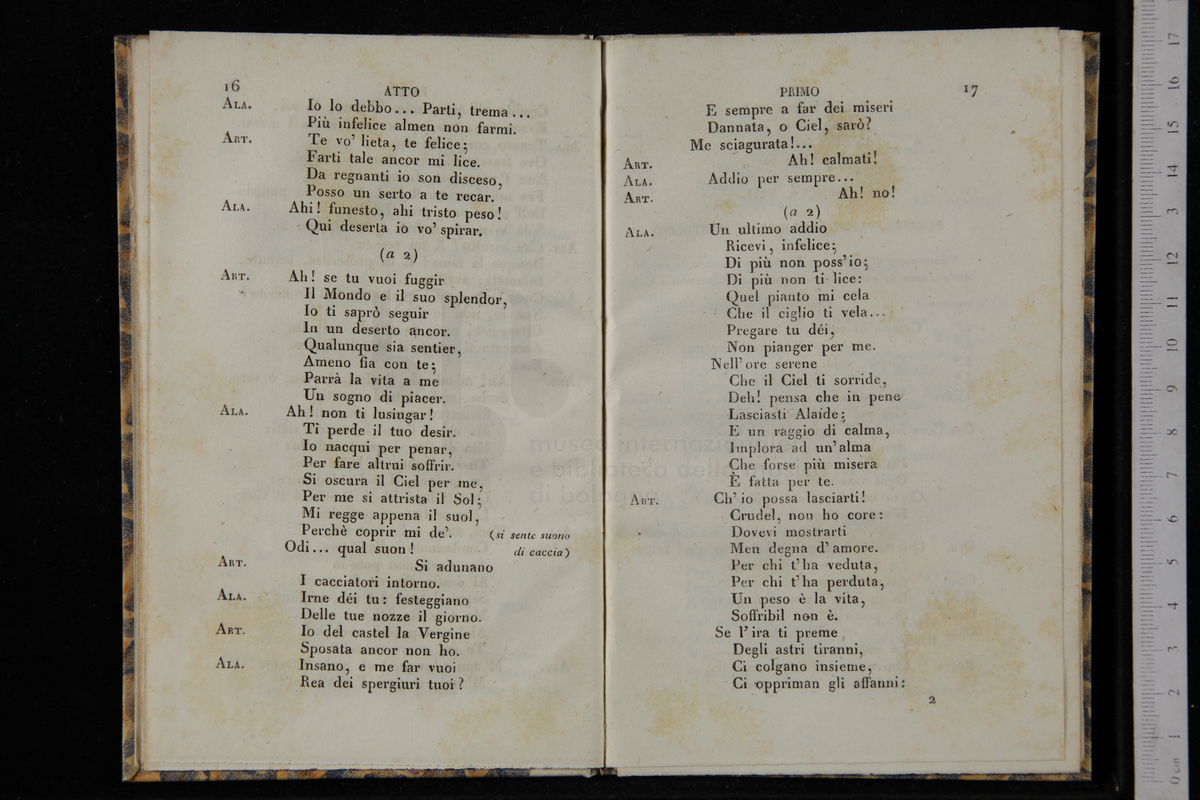 16
ATTO
ALA. Io lo debbo... Parti, trema...
Più infelice almen non farmi.
ART. Te vo' lieta, te felice;
Farti tale ancor mi lice.
Da regnanti io son disceso,
Posso un serto a te recar.
ALA. Ahi! funesto, ahi tristo peso!
Qui deserta io vo' spirar.
(a 2)
ART. Ah! se tu vuoi fuggir
Il Mondo e il suo splendor,
Io ti saprò seguir
In un deserto ancor.
Qualunque sia sentier,
Ameno fia con te;
Parrà la vita a me
Un sogno di piacer.
ALA. Ah! non ti lusingar!
Ti perde il tuo desir.
Io nacqui per penar,
Per fare altrui soffrir.
Si oscura il Ciel per me,
Per me si attrista il Sol;
Mi regge appena il suol,
Perchè coprir mi de'. (si sente suono
Odi... qual suon! di caccia)
ART. Si adunano
I cacciatori intorno.
ALA. Irne déi tu: festeggiano
Delle tue nozze il giorno.
ART. Io del castel la Vergine
Sposata ancor non ho.
ALA. Insano, e me far vuoi
Rea dei spergiuri tuoi?
PRIMO
17
E sempre a far dei miseri
Dannata, o Ciel, sarò?
Me sciagurata!...
ART. Ah! calmati!
ALA. Addio per sempre...
ART. Ah! no!
(a 2)
ALA. Un ultimo addio
Ricevi, infelice;
Di più non poss'io;
Di più non ti lice:
Quel pianto mi cela
Che il ciglio ti vela...
Pregare tu déi,
Non pianger per me.
Nell'ore serene
Che il Ciel ti sorride,
Deh! pensa che in pene
Lasciasti Alaide;
E un raggio di calma,
Implora ad un'alma
Che forse più misera
È fatta per te.
ART. Ch'io possa lasciarti!
Crudel, non ho core:
Dovevi mostrarti
Men degna d'amore.
Per chi t'ha veduta,
Per chi t'ha perduta,
Un peso è la vita,
Soffribil non è.
Se l'ira ti preme
Degli astri tiranni,
Ci colgano insieme,
Ci oppriman gli affanni:
2